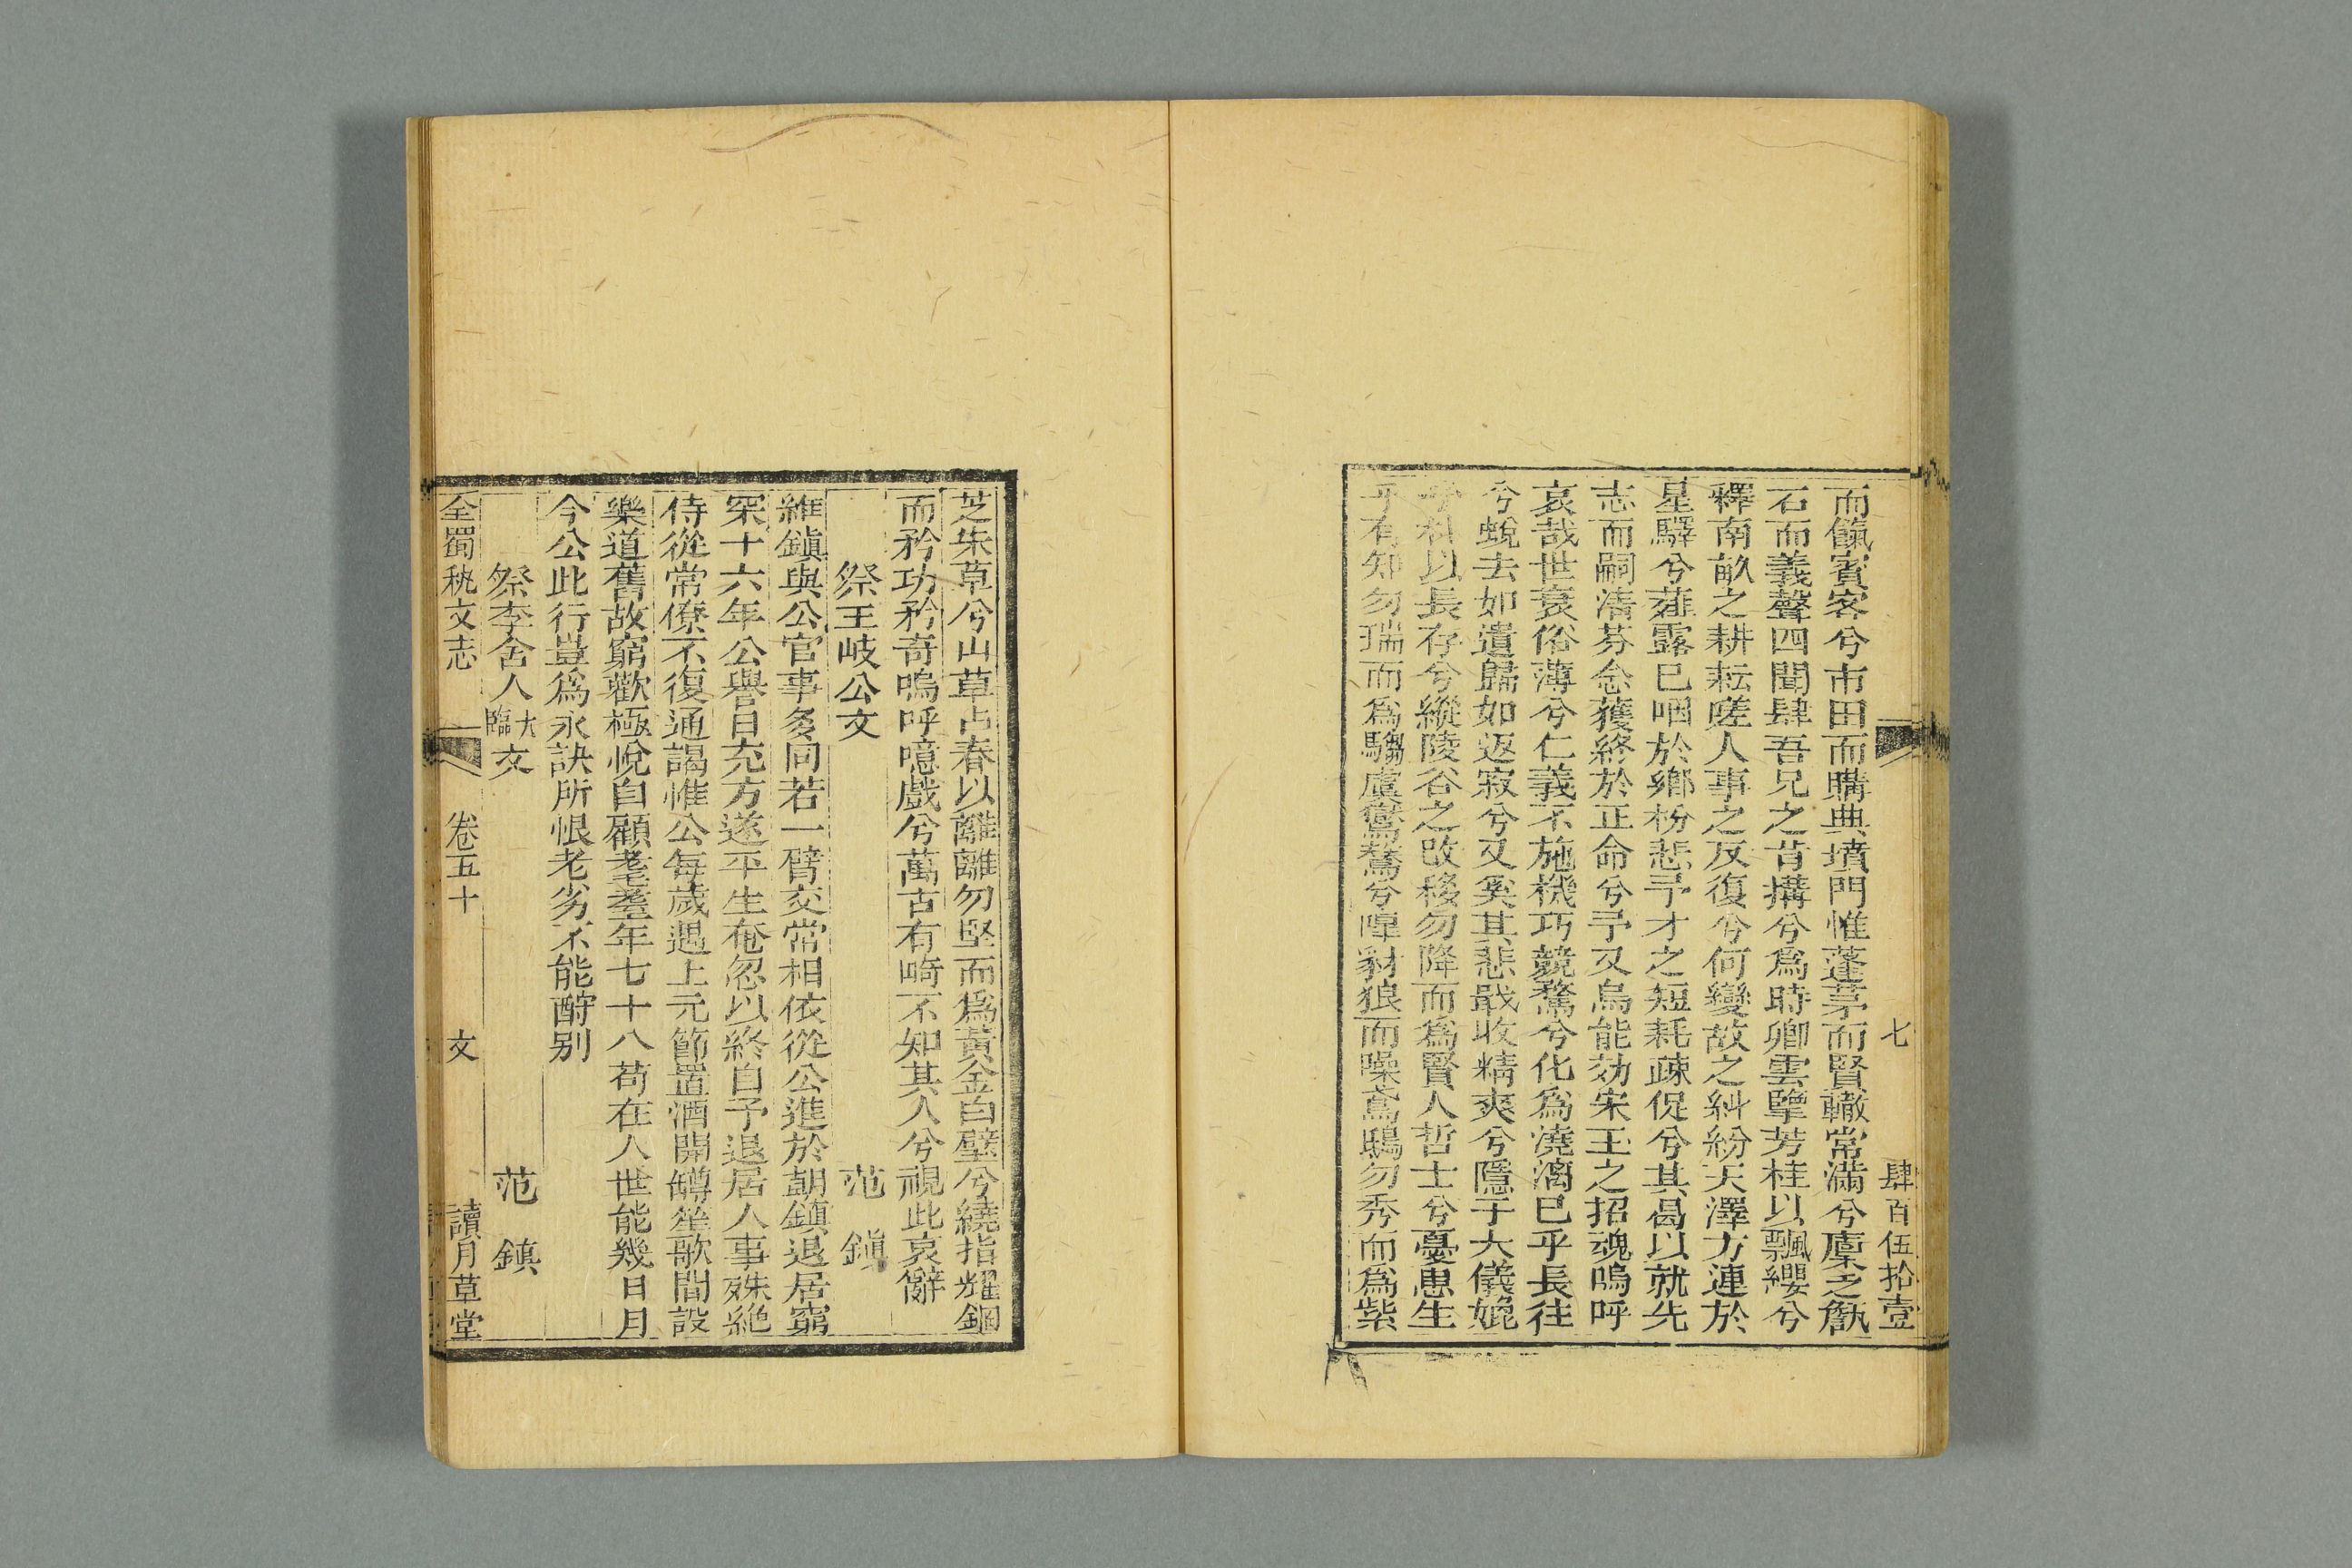 七 肆百伍拾壹
而餼賓客兮市田而購典墳門惟蓬茅而賢轍常滿兮廩乏甔
石而義聲四聞肆吾兄之肯搆兮爲時卿雲擥芳桂以飄纓兮
釋南畝之耕耘嗟人事之反復兮何變故之糾紛天澤方連於
星驛兮薤露已咽於鄉枌悲予才之短耗疎促兮其曷以就先
志而嗣清芬念獲終於正命兮予又烏能効宋玉之招魂嗚呼
哀哉世衰俗薄兮仁義不施機巧競騖兮化爲澆漓已乎長往
兮蛻去如遺歸如返寂兮又奚其悲戢收精爽兮隱于大儀媿
兮以長存兮縱陵谷之改移勿降而爲賢人哲士兮憂患生
乎有知勿瑞而爲騶虞鸑鷟兮嘷豺狼而噪鳶鴟勿秀而爲紫
芝朱草兮山草占春以離離勿堅而爲黃金白璧兮繞指耀鋼
而矜功矜奇嗚呼噫戲兮萬古有崎不知其人兮視此哀辭
祭王岐公文 范鎮
維鎮與公官事多同若一臂交常相依從公進於朝鎮退居窮
罙十六年公譽日充方遂平生奄忽以終自予退居人事殊絶
侍從常僚不復通謁惟公每歲遇上元節置酒開罇笙歌間設
樂道舊故窮歡極悅自顧耄耋年七十八苟在人世能幾日月
今公此行豈爲永訣所恨老劣不能酹别
祭李舍人大臨文 范鎮
全蜀秇文志 卷五十 文 讀月草堂